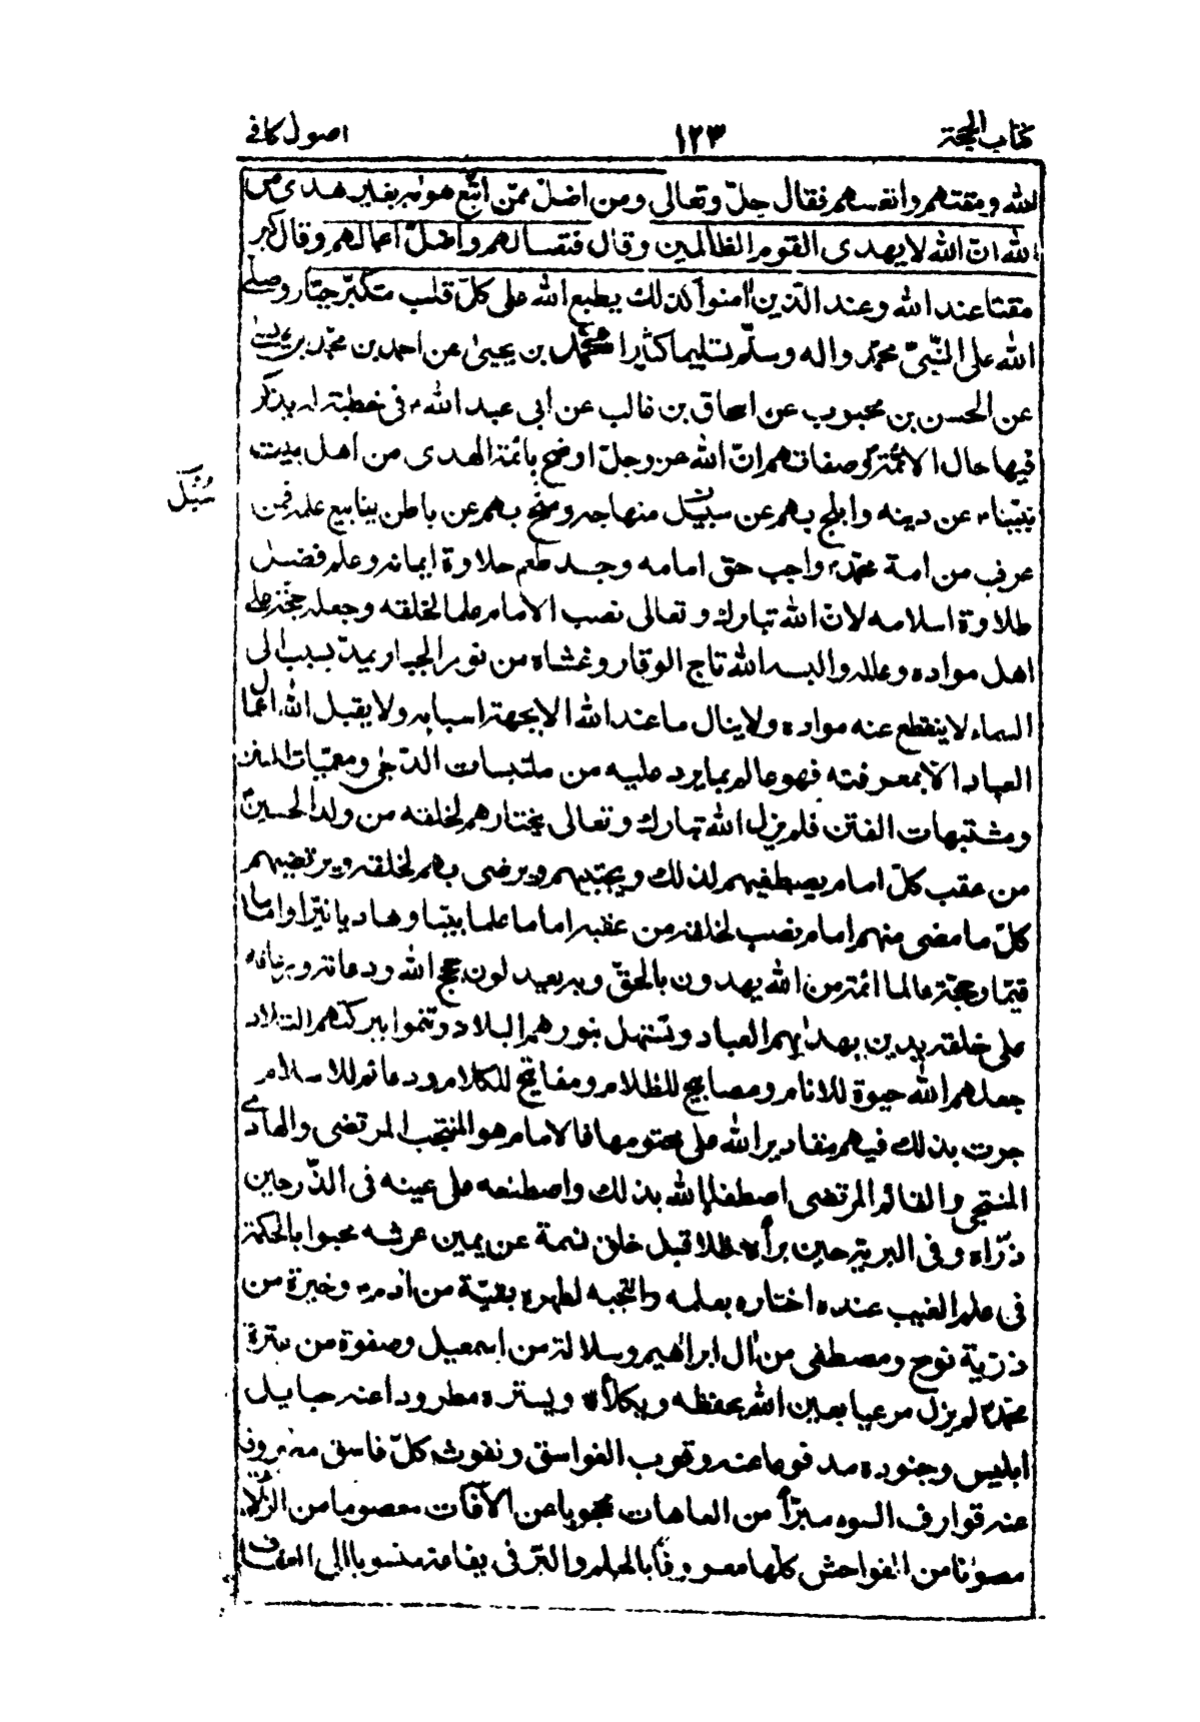 كتاب الحجة
١٢٣
اصول كافى
الله ومقتهم واتعسهم فقال جلّ وتعالى ومن اضلّ ممّن اتّبع هواه بغير هدى من
الله انّ الله لا يهدى القوم الظالمين وقال فتعسا لهم واضلّ اعمالهم وقال كبر
مقتا عند الله وعند الذين امنوا كذلك يطبع الله على كلّ قلب متكبّر جبّار وصلى
الله على النّبىّ محمّد واله وسلّم تسليما كثيرا محمّد بن يحيى عن احمد بن محمّد بن عيسى
عن الحسن بن محبوب عن اسحاق بن غالب عن ابى عبد الله ع فى خطبة له يذكر
فيها حال الائمّة ع وصفاتهم انّ الله عز وجلّ اوضح بائمّة الهدى من اهل بيت
نبيّنا ع عن دينه وابلج بهم عن سبيل منهاجه ومنح بهم عن باطن ينابيع علمه فمن
سُبُل
عرف من امة محمّد ع واجب حق امامه وجد طعم حلاوة ايمانه وعلم فضل
طلاوة اسلامه لان الله تبارك وتعالى نصب الامام علما لخلقه وجعله حجّة على
اهل مواده وعالمه والبسه الله تاج الوقار وغشاه من نور الجبار يمدّ بسبب الى
السماء لا ينقطع عنه مواده ولا ينال ما عند الله الا بجهة اسبابه ولا يقبل الله اعمال
العباد الّا بمعرفته فهو عالم بما يرد عليه من ملتبسات الدّجى ومعمّيات السنن
ومشتبهات الفتن فلم يزل الله تبارك وتعالى يختارهم لخلقه من ولد الحسين ع
من عقب كلّ امام يصطفيهم لذلك ويجتبيهم ويرضى بهم لخلقه ويرتضيهم
كلّ ما مضى منهم امام نصب لخلقه من عقبه اماما علما بيّنا وهاديا نيّرا واماما
قيّما وحجّة عالما ائمّة من الله يهدون بالحقّ وبه يعدلون حجج الله ودعاته ورعاته
على خلقه يدين بهديهم العباد وتستهل بنورهم البلاد وتنموا ببركتهم التلاد
جعلهم الله حيوة للانام ومصابيح للظلام ومفاتيح للكلام ودعائم للاسلام
جرت بذلك فيهم مقادير الله على محتومها فالامام هو المنتجب المرتضى والهادى
المنتجى والقائم المرتضى اصطفاه الله بذلك واصطنعه على عينه فى الذّر حين
ذرّاه وفى البرية حين برأه ظلا قبل خلق نسمة عن يمين عرشه محبوا بالحكمة
فى علم الغيب عنده اختاره بعلمه وانتجبه لطهره بقيّة من ادم ع وخيرة من
ذرّية نوح ومصطفى من ال ابراهيم وسلالة من اسمعيل وصفوة من عترة
محمّد ع لم يزل مرعيا بعين الله يحفظه ويكلأه ويستره مطرودا عنه حبايل
ابليس وجنوده مدفوعا عنه وقوب الغواسق ونفوث كلّ فاسق مصروفا
عنه قوارف السوء مبرّأ من العاهات محجوبا عن الآفات معصوما من الزلات
مصونا من الفواحش كلّها معروفا بالحلم والبرّ فى يفاعه منسوبا الى العفاف